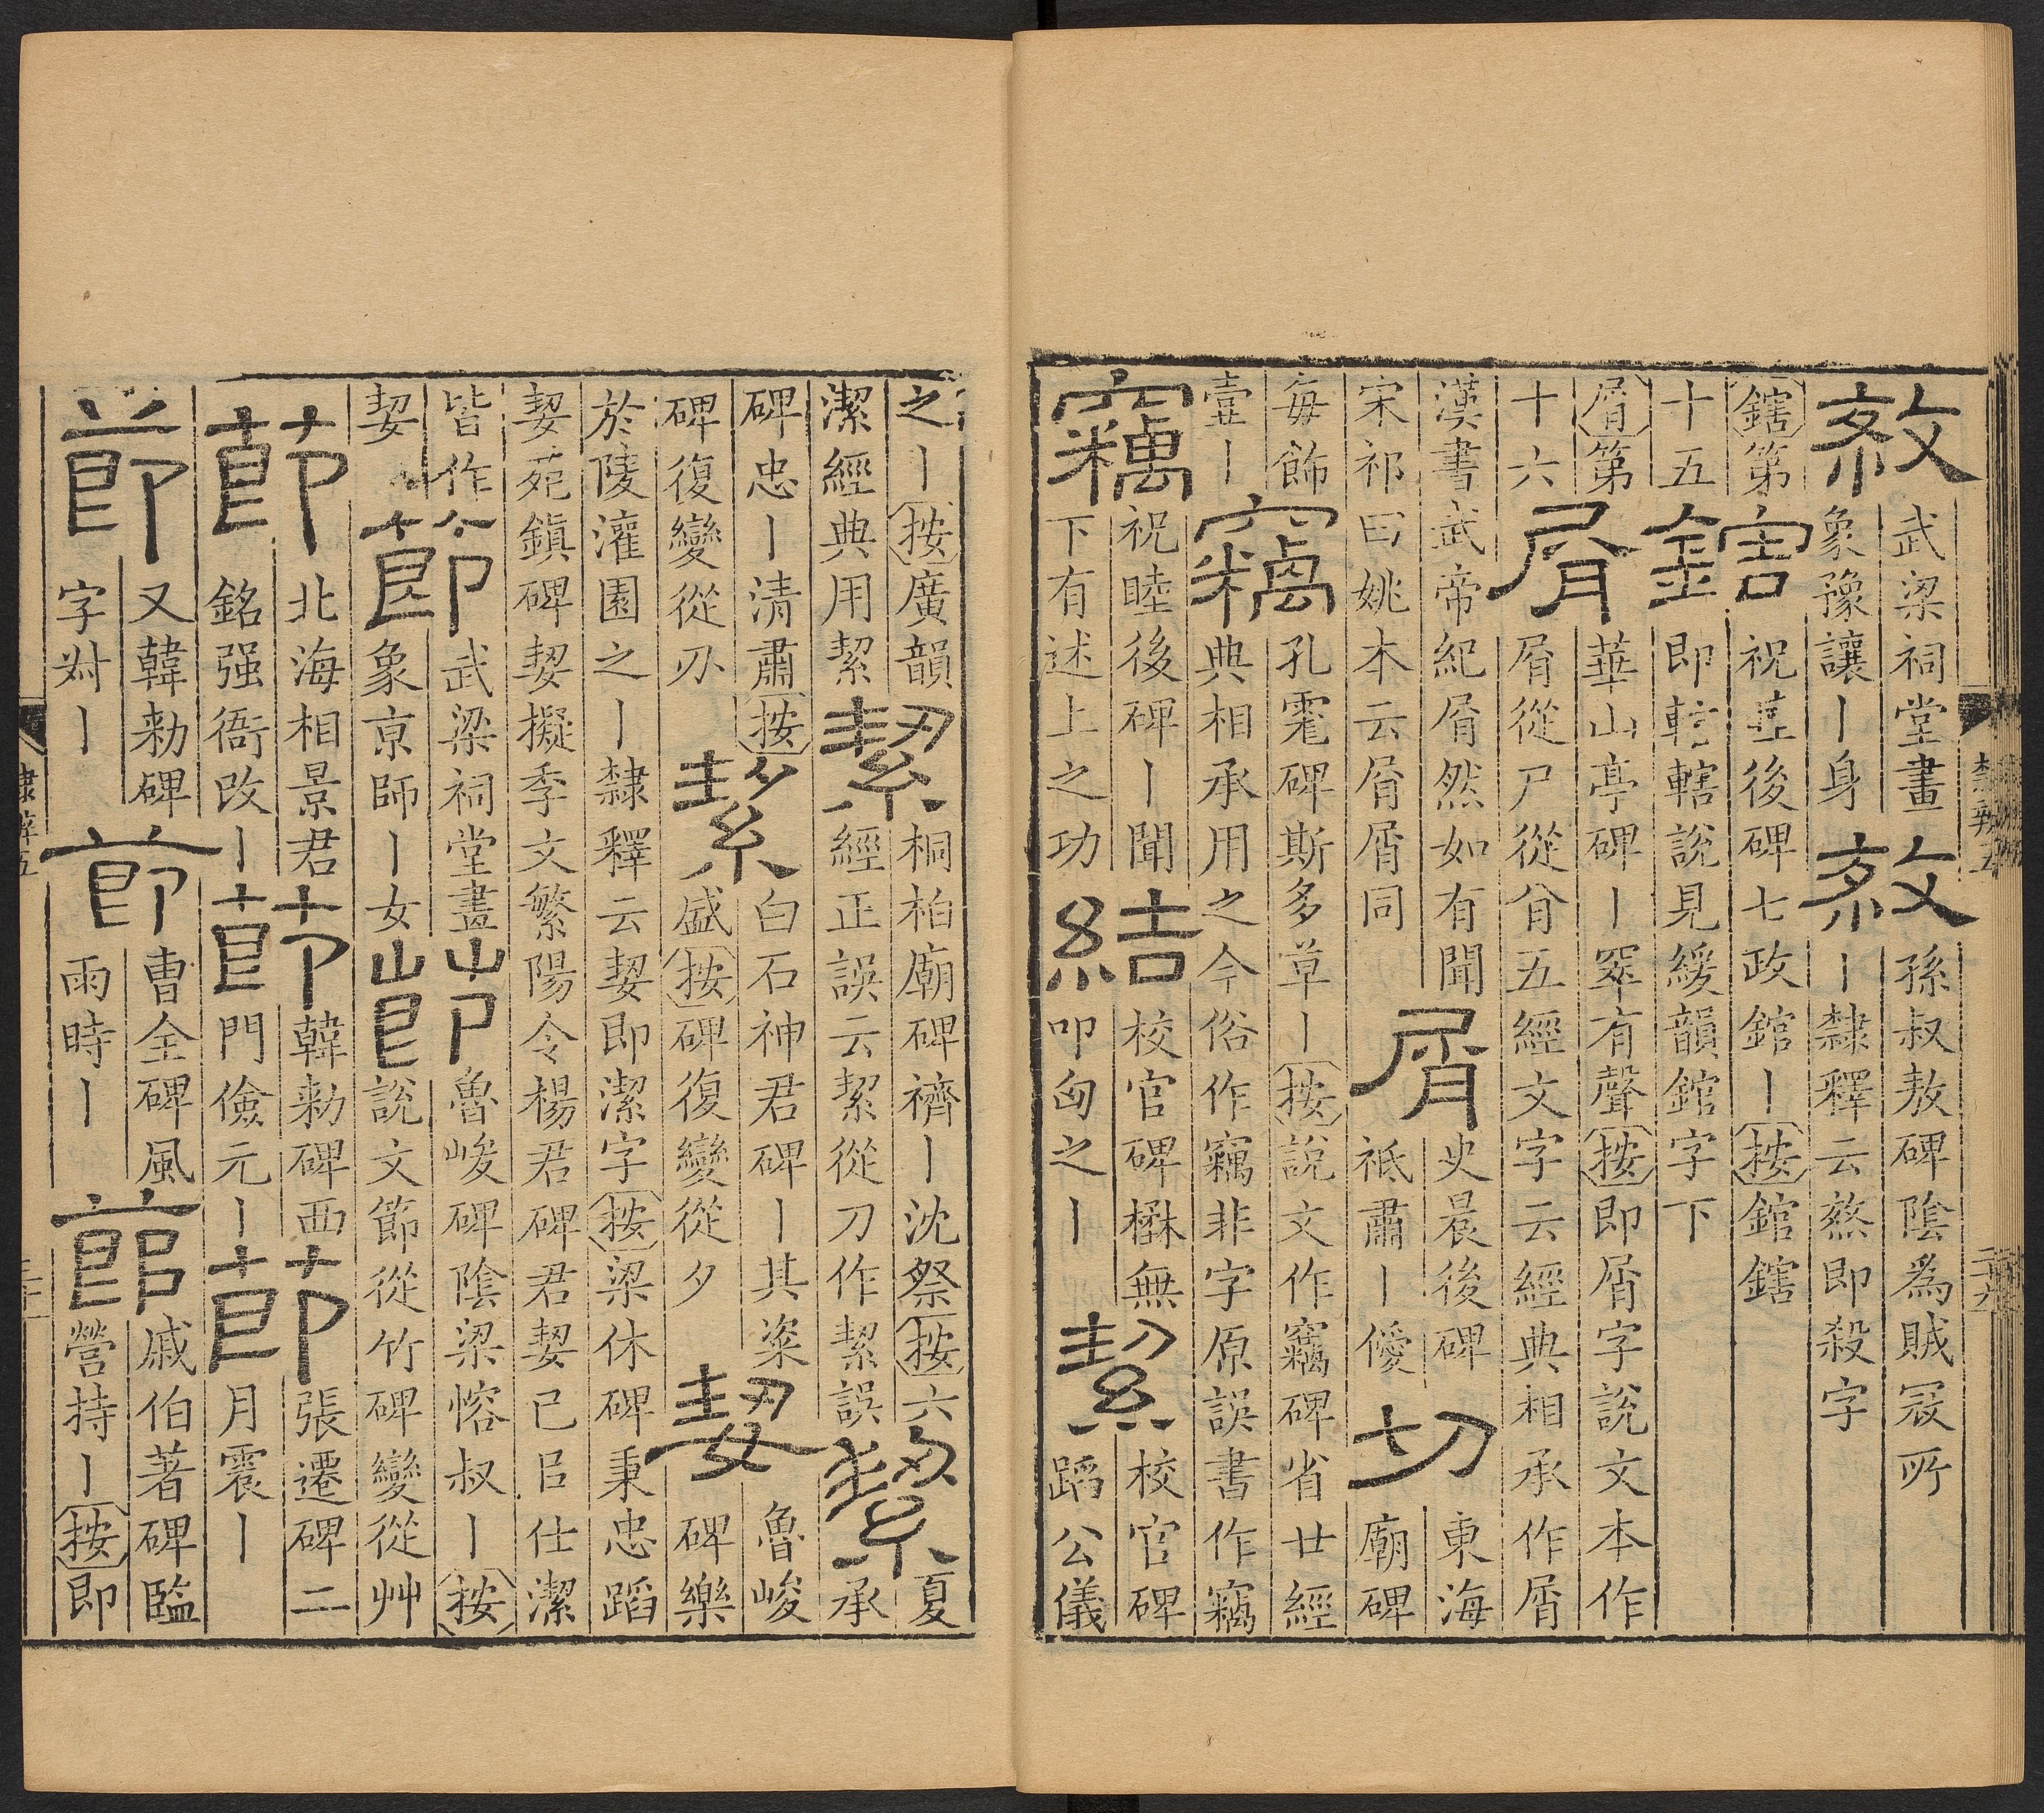 煞
武梁祠堂畫
象豫讓丨身
煞
孫叔敖碑陰為賊冦所
丨隸釋云煞即殺字
鎋第
十五
鎋
祝睦後碑七政錧丨按錧鎋
即轄轄說見緩韻錧字下
屑第
十六
屑
華山亭碑丨窣有聲按即屑字說文本作
屑從尸從㕧五經文字云經典相承作屑
漢書武帝紀屑然如有聞
宋祁曰姚本云屑屑同
屑
史晨後碑
祗肅丨僾
切
東海
廟碑
每飾
壹丨
竊
孔霮碑斯多草丨按說文作竊碑省廿經
典相承用之今俗作竊非字原誤書作竊
竊
祝睦後碑丨聞
下有述上之功
結
校官碑楙無
叩匈之丨
絜
校官碑
蹈公儀
隸辨五
之丨按廣韻
潔經典用絜
絜
桐柏廟碑禱丨沈祭按六
經正誤云絜從刀作絜誤
絜
夏
承
碑忠丨清肅按
碑復變從刅
絜
白石神君碑丨其粢
盛按碑復變從夕
㛃
魯峻
碑樂
於陵灌園之丨隸釋云㛃即潔字按梁休碑秉忠蹈
㛃苑鎮碑㛃擬季文繁陽令楊君碑君㛃已㠯仕潔
皆作
㛃
節
武梁祠堂畫
象京師丨女
節
魯峻碑陰梁愹叔丨按
說文節從竹碑變從艸
節
北海相景君
銘强衙改丨
節
韓勑碑西
門儉元丨
節
張遷碑二
月震丨
節
又韓勑碑
字丨
節
曹全碑風
雨時丨
節
戚伯著碑臨
營持丨按即
隸辨五